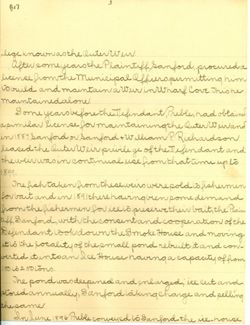 3
lege known as the Outer Weir.
After some years the Plaintiff, Sanford, procured a
license from the Municipal Officers permitting him
to build and maintain a Weir in Wharf Cove. This he
maintained alone.
Some years before the Defendant, Preble, had obtained
a similar license for maintaining the Outer Weir and
in 1885 Sanford & William P. Richardson
leased the Outer Weir privilege of the Defendant and
the weir was in continual use from that time up to
The fish taken from these weirs were sold to fishermen
for bait and in 1889 there having been some demand
from the fishermen for ice to preserve their bait the
Sanford, with the consent and cooperation of the
Defendant took down the Smoke House and moving
it to the locality of the small pond rebuilt it and con-
verted it into an Ice House having a capacity of from
to tons.
The pond was deepened and enlarged, ice cut and
stored annually, Sanford taking charge and selling
the same.
In June 1896 Preble conveyed to Sanford the ice-house